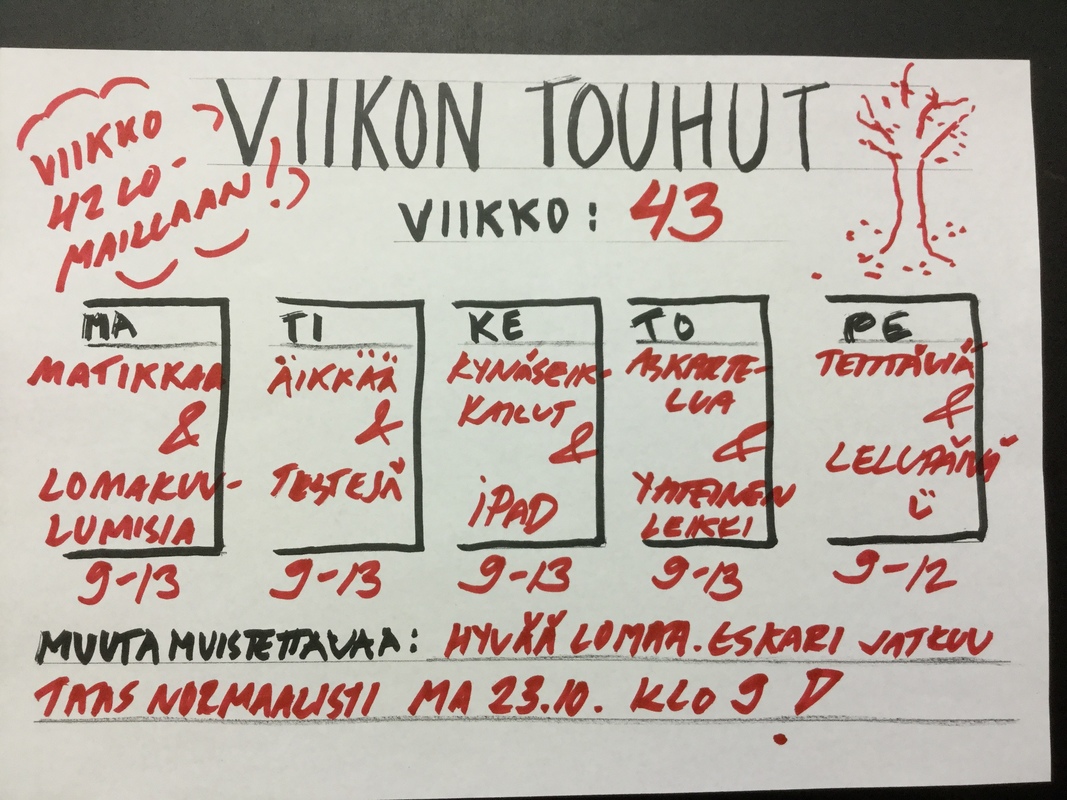 VIIKON TOUHUT
VIIKKO
42 LO-
MAILLAAN!
VIIKKO: 43
MA
MATIKKAA
&
LOMAKUU-
LUMISIA
9-13
TI
ÄIKKÄÄ
&
TESTEJÄ
9-13
KE
KYNÄSEIK-
KAILUT
&
iPAD
9-13
TO
ASKARTE-
LUA
&
YHTEINEN
LEIKKI
9-13
PE
TEHTÄVIÄ
&
LELUPÄIVÄ
9-12
MUUTA MUISTETTAVAA: HYVÄÄ LOMAA. ESKARI JATKUU
TAAS NORMAALISTI MA 23.10. KLO 9!